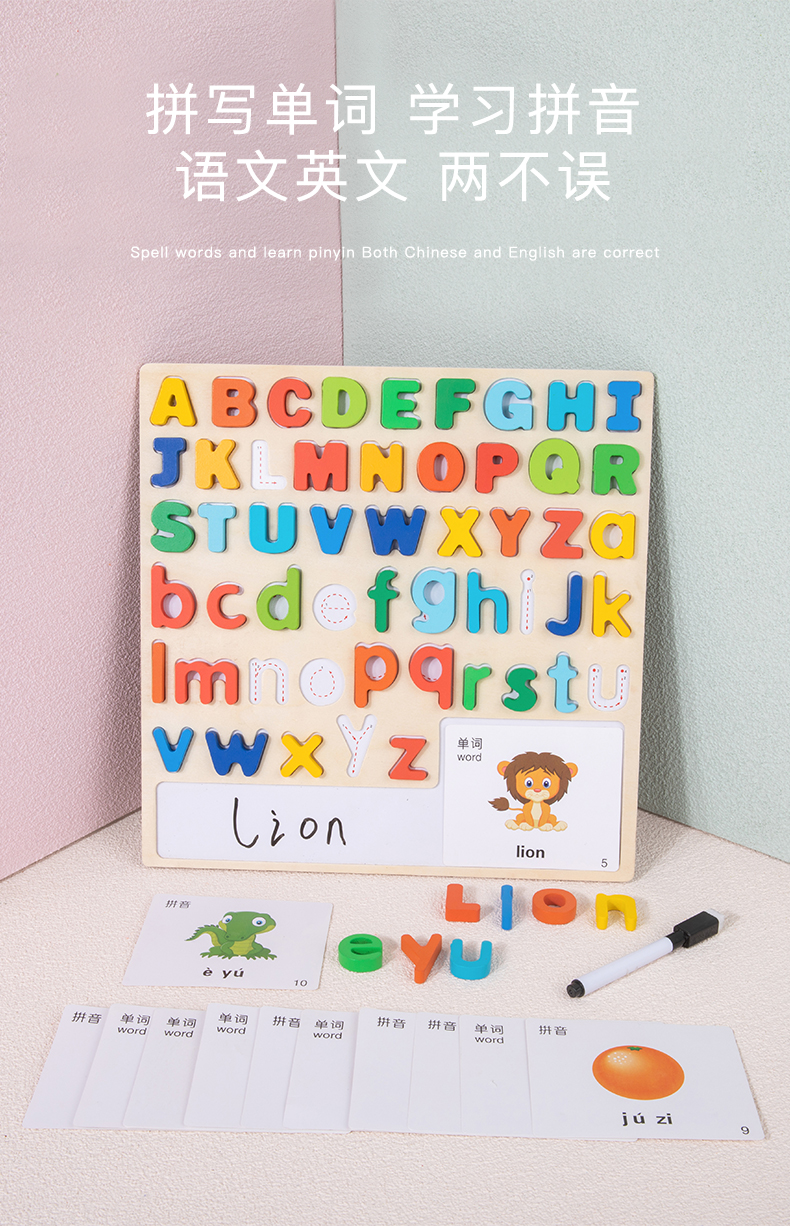 拼写单词 学习拼音
语文英文 两不误
Spell words and learn pinyin Both Chinese and English are correct
A B C D E F G H I
J K L M N O P Q R
S T U V W X Y Z a
b c d e f g h i J k
l m n o p q r s t u
v w x y z
单词
word
lion
5
Lion
L I O n
拼音
è yú
10
e Y U
拼音
单词
word
单词
word
单词
word
拼音
单词
word
拼音
拼音
单词
word
拼音
jú zi
9